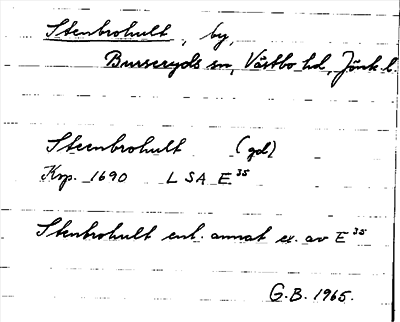 Stenbrohult, by,
Burseryds sn, Västbo hd, Jönk. l.
Steenbrohult (gd)
Kop. 1690 LSA E 35
Stenbrohult enl. annat ex. av E 35
G.B. 1965.